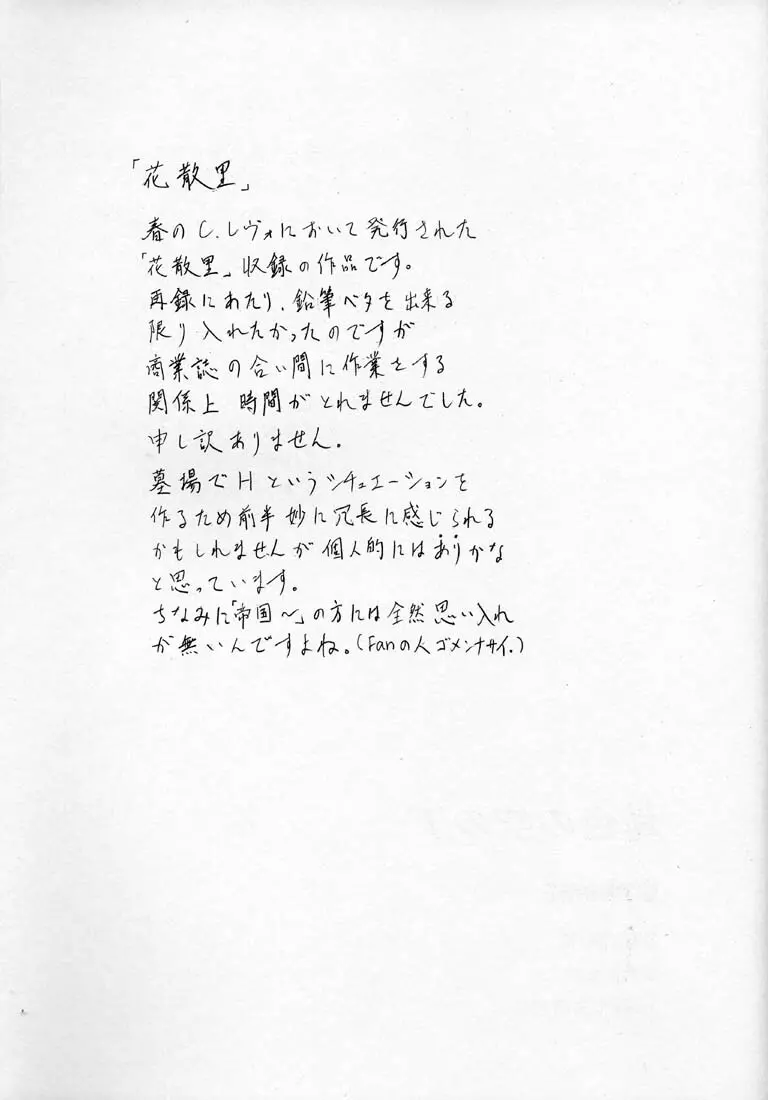 「花散里」
春のC.レヴォにおいて発行された
「花散里」収録の作品です。
再録にあたり、鉛筆ベタを出来る
限り入れたかったのですが
商業誌の合い間に作業をする
関係上 時間がとれませんでした。
申し訳ありません。
墓場でHというシチュエーションを
作るため前半妙に冗長に感じられる
かもしれませんが個人的にはありかな
と思っています。
ちなみに「帝国〜」の方には全然思い入れ
が無いんですよね。(Fanの人ゴメンナサイ.)